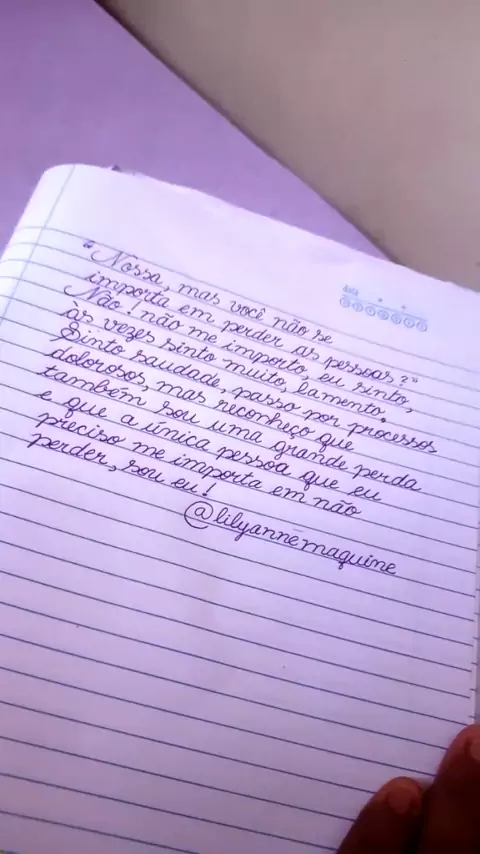 "Nossa, mas você não se
importa em perder as pessoas?"
Não! não me importo, eu sinto,
às vezes sinto muito, lamento.
Sinto saudade, passo por processos
dolorosos, mas reconheço que
também sou uma grande perda
e que a única pessoa que eu
preciso me importa em não
perder, sou eu!
@lilyannemaquine